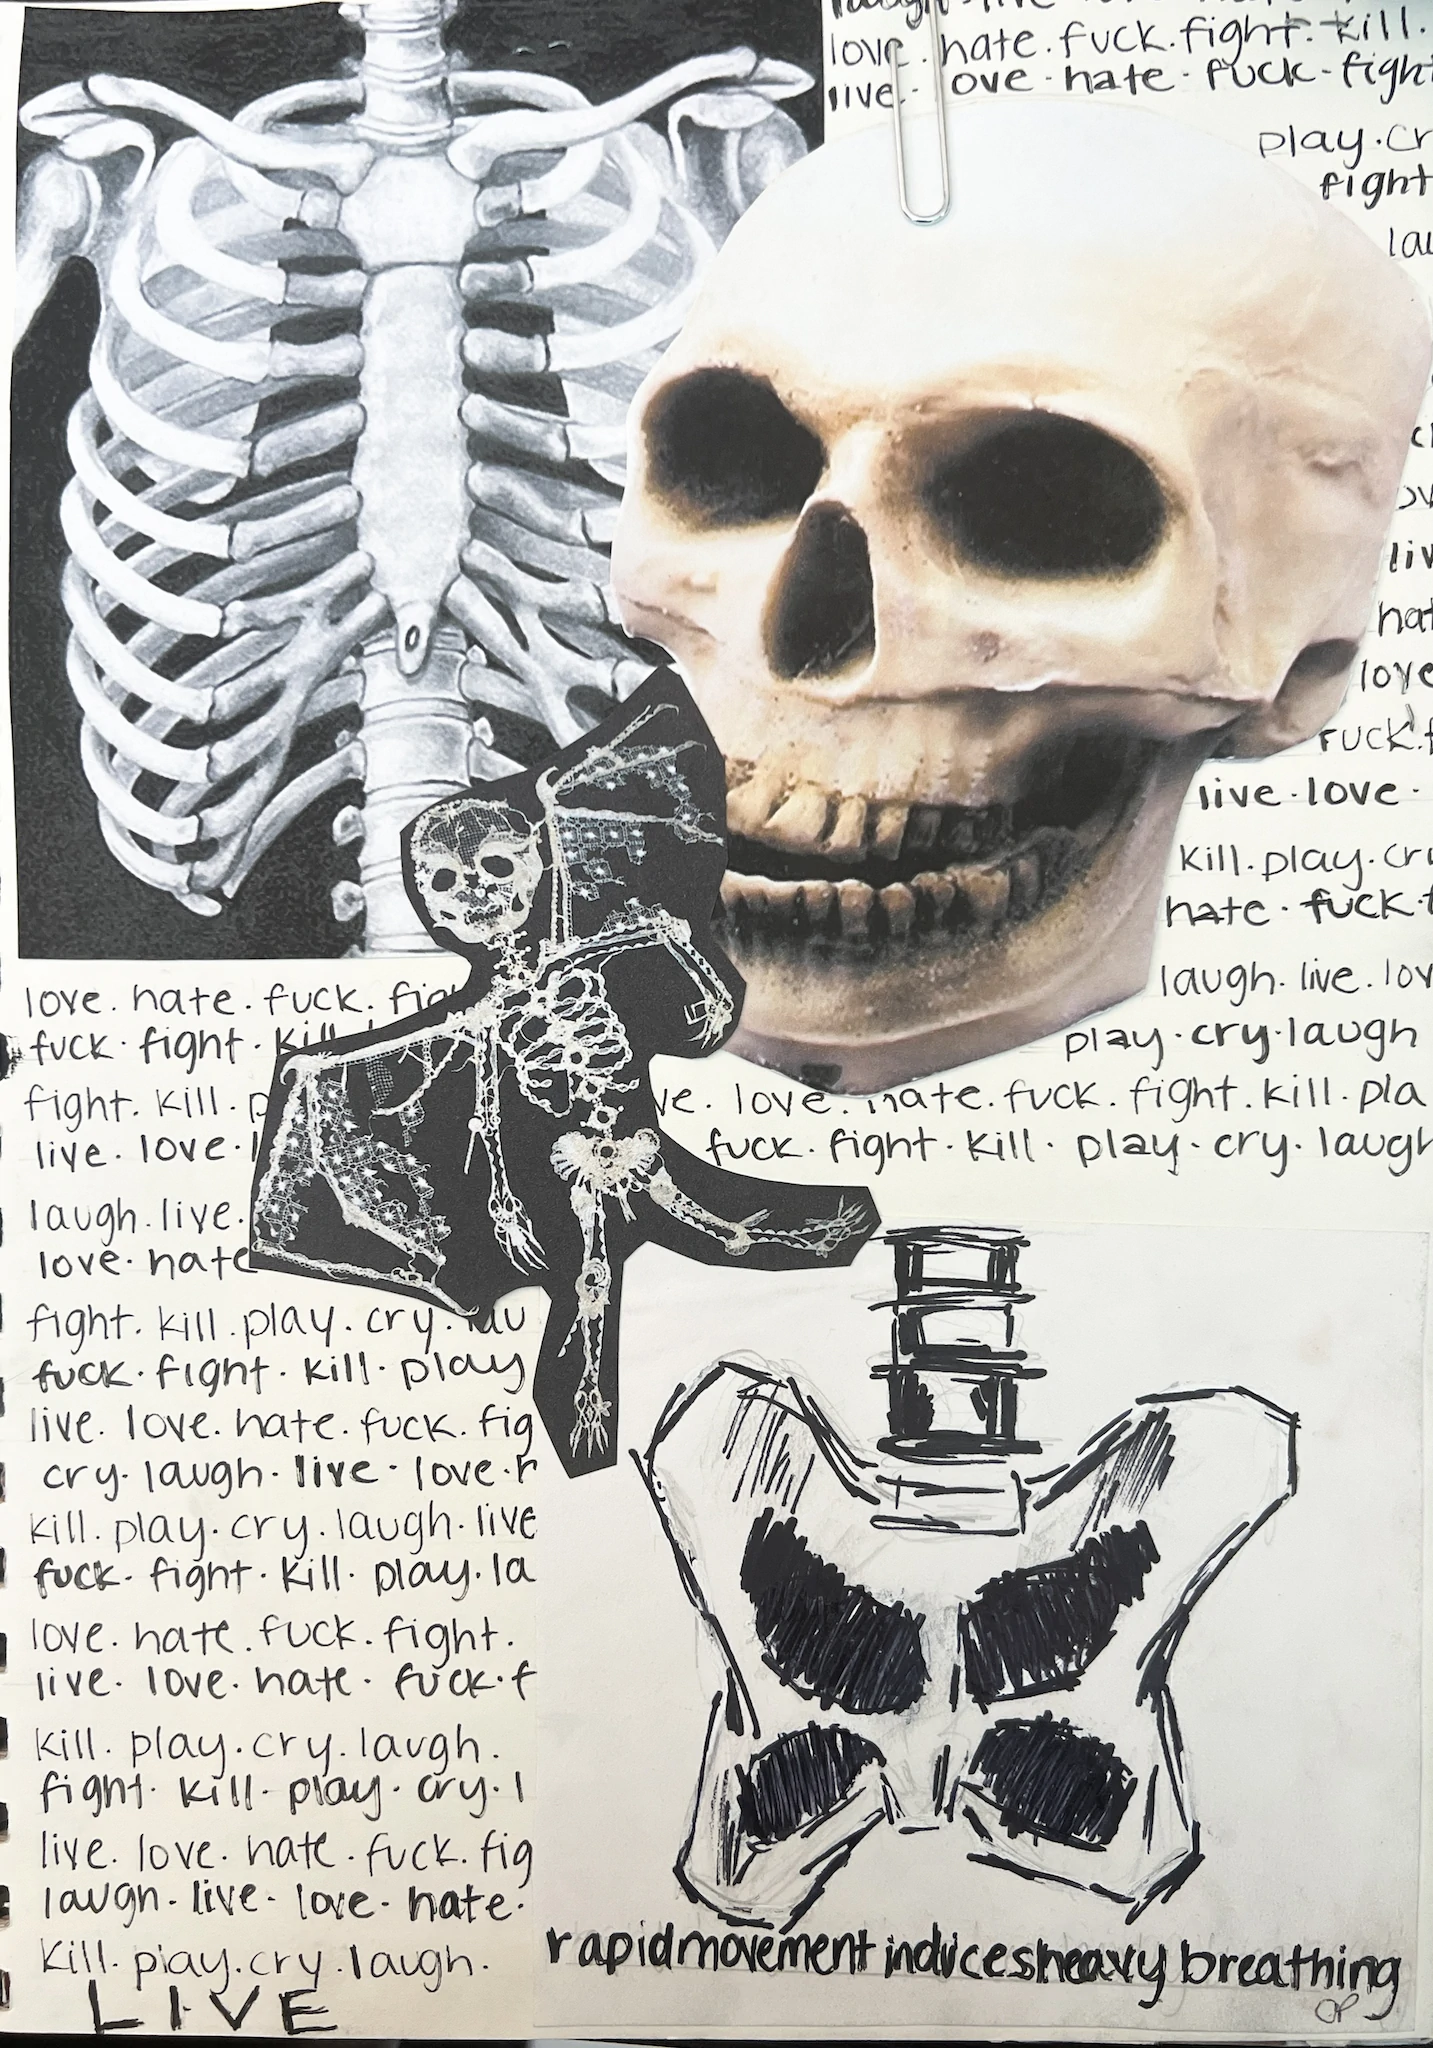 love. hate. fuck. fight. kill.
live. ove. hate. fuck. fight
play.cr
fight
lau
liv
hat
love
fuck.f
live.love.
kill.play.cry
hate. fuck.f
laugh. live. lov
play. cry. laugh
ve. love. hate. fuck. fight. kill. pla
fuck. fight. kill. play. cry. laugh
love. hate. fuck. figh
fuck. fight. kill
fight. kill. p
live. love. l
laugh. live.
love. hate
fight. kill. play. cry. lau
fuck. fight. kill. play
live. love. hate. fuck. fig
cry. laugh. live. love. h
kill. play. cry. laugh. live
fuck. fight. kill. play. la
love. hate. fuck. fight.
live. love. hate. fuck. f
kill. play. cry. laugh.
fight. kill. play. cry. l
live. love. hate. fuck. fig
laugh. live. love. hate.
kill. play. cry. laugh.
LIVE
rapidmovement inducesheavy breathing